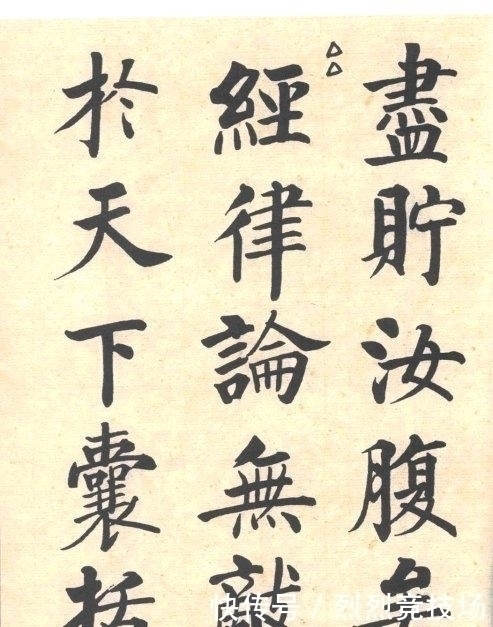 盡貯汝腹矣
經律論無敵
於天下囊括
快传号 / 烈烈竞技场